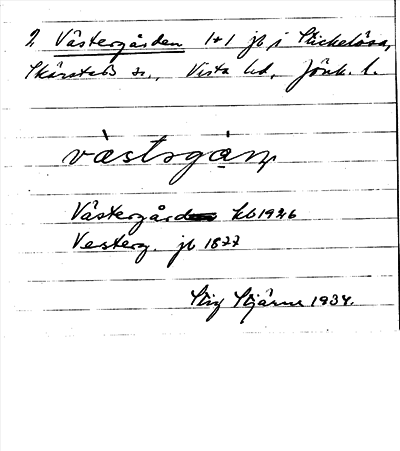 2 Västergården 1+1 jb i Stickelösa,
Skärstads sn., Vista hd, Jönk. l.
västərgàṇ
Västergård kb 1926
Vesterg. jb 1877
Stig Stjärne 1934.